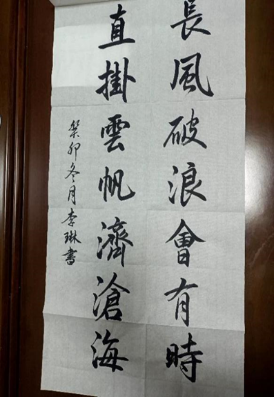 長風破浪會有時
直掛雲帆濟滄海
癸卯冬月李琳書